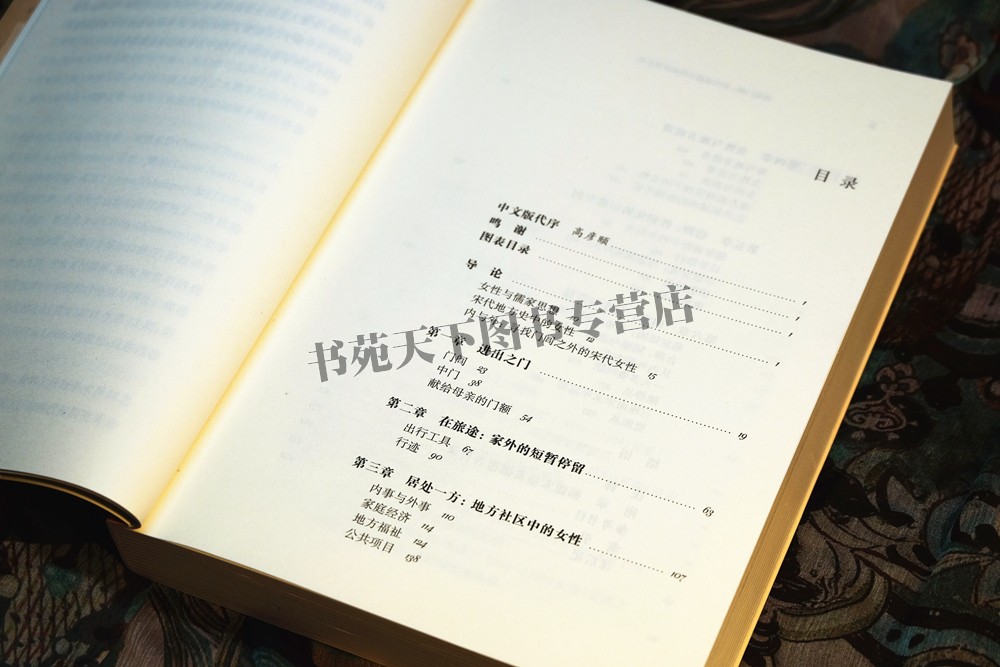 目录
中文版代序 高彦颐
鸣 谢
图表目录
导 论
女性与儒家思想
宋代地方史中的女性
内与外：寻找门阃之外的宋代女性 15
第一章 进出之门 19
门阃 23
中门 38
献给母亲的门额 54
第二章 在旅途：家外的短暂停留 63
出行工具 67
行迹 90
第三章 居处一方：地方社区中的女性 107
内事与外事 110
家庭经济 114
地方福祉 124
公共项目 138
书苑天下图书专营店